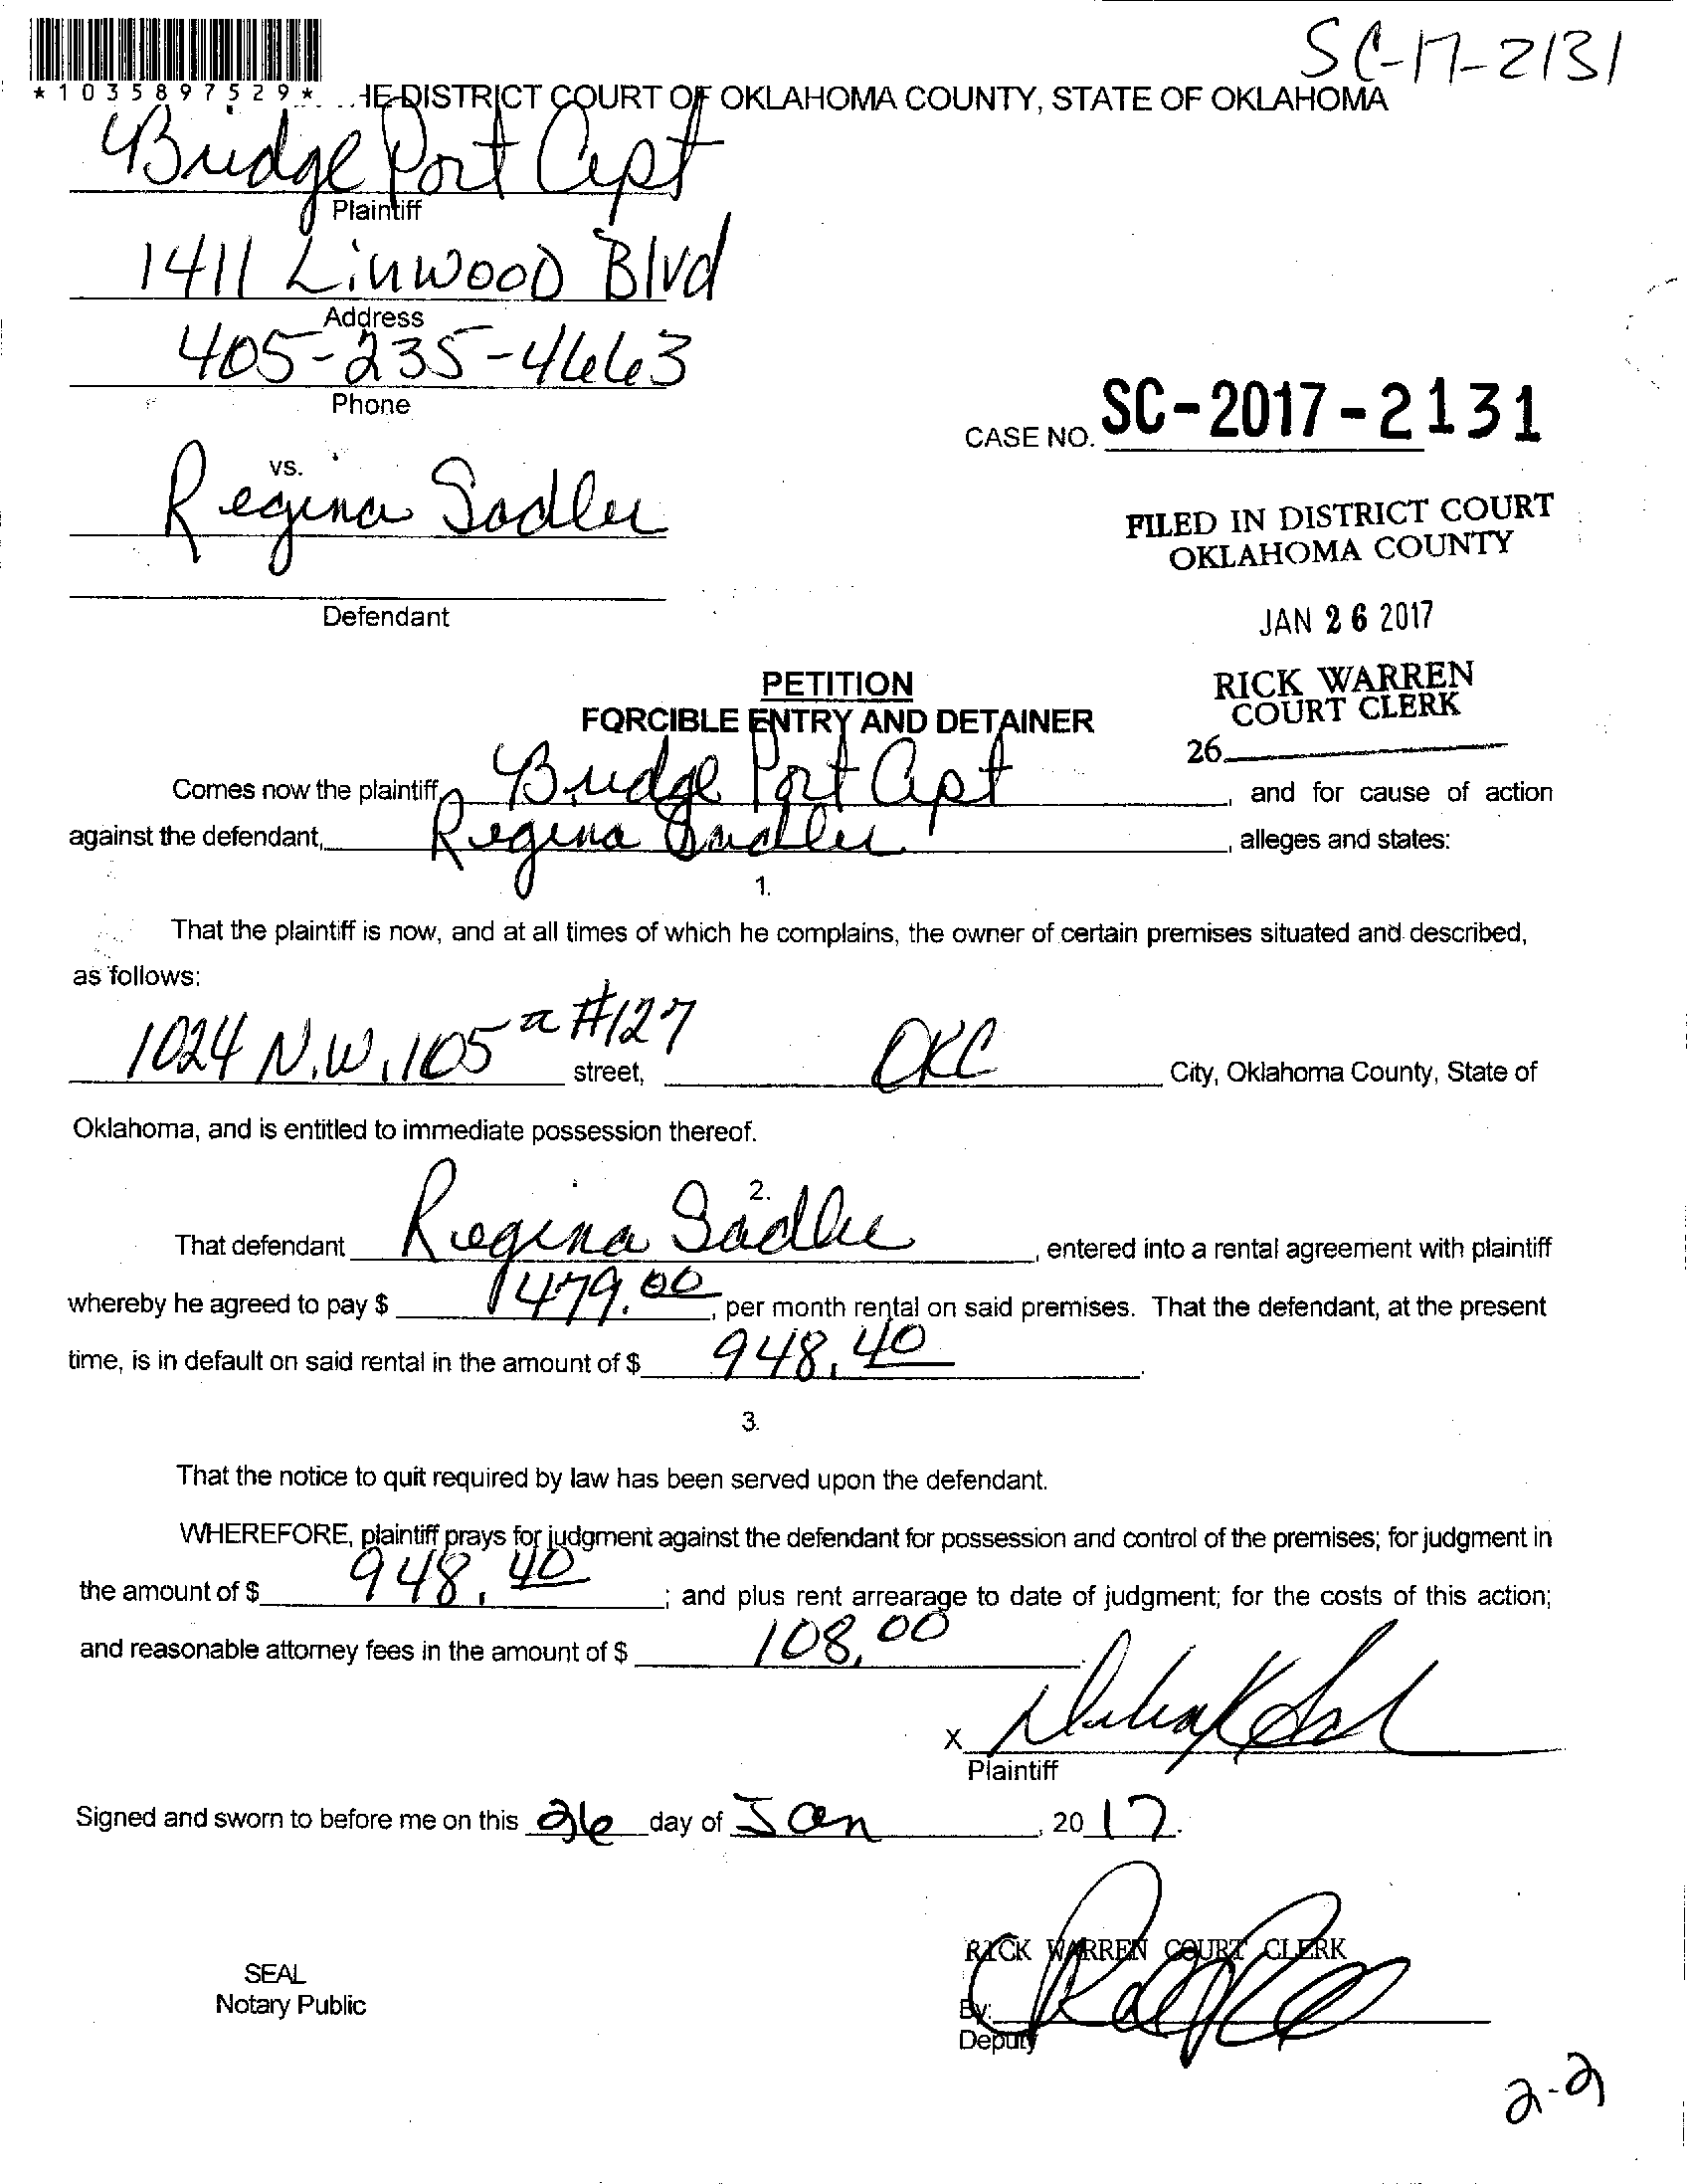 SC-17-2131
*1035897529*
HE DISTRICT COURT OF OKLAHOMA COUNTY, STATE OF OKLAHOMA
Bridge Port Apt
Plaintiff
1411 Linwood Blvd
Address
405-235-4663
Phone
CASE NO. SC-2017-2131
vs.
Regina Sadler
FILED IN DISTRICT COURT
OKLAHOMA COUNTY
Defendant
JAN 26 2017
PETITION
RICK WARREN
FORCIBLE ENTRY AND DETAINER
COURT CLERK
26
Comes now the plaintiff, Bridge Port Apt, and for cause of action
against the defendant, Regina Sadler, alleges and states:
1.
That the plaintiff is now, and at all times of which he complains, the owner of certain premises situated and described,
as follows:
1024 N.W. 105 #127 street, OKC City, Oklahoma County, State of
Oklahoma, and is entitled to immediate possession thereof.
2.
That defendant Regina Sadler, entered into a rental agreement with plaintiff
whereby he agreed to pay $ 479.00, per month rental on said premises. That the defendant, at the present
time, is in default on said rental in the amount of $ 948.40.
3.
That the notice to quit required by law has been served upon the defendant.
WHEREFORE, plaintiff prays for judgment against the defendant for possession and control of the premises; for judgment in
the amount of $ 948.40; and plus rent arrearage to date of judgment; for the costs of this action;
and reasonable attorney fees in the amount of $ 108.00.
X
Plaintiff
Signed and sworn to before me on this 26 day of Jan, 2017.
RICK WARREN COURT CLERK
SEAL
Notary Public
By:
Deputy
2-2